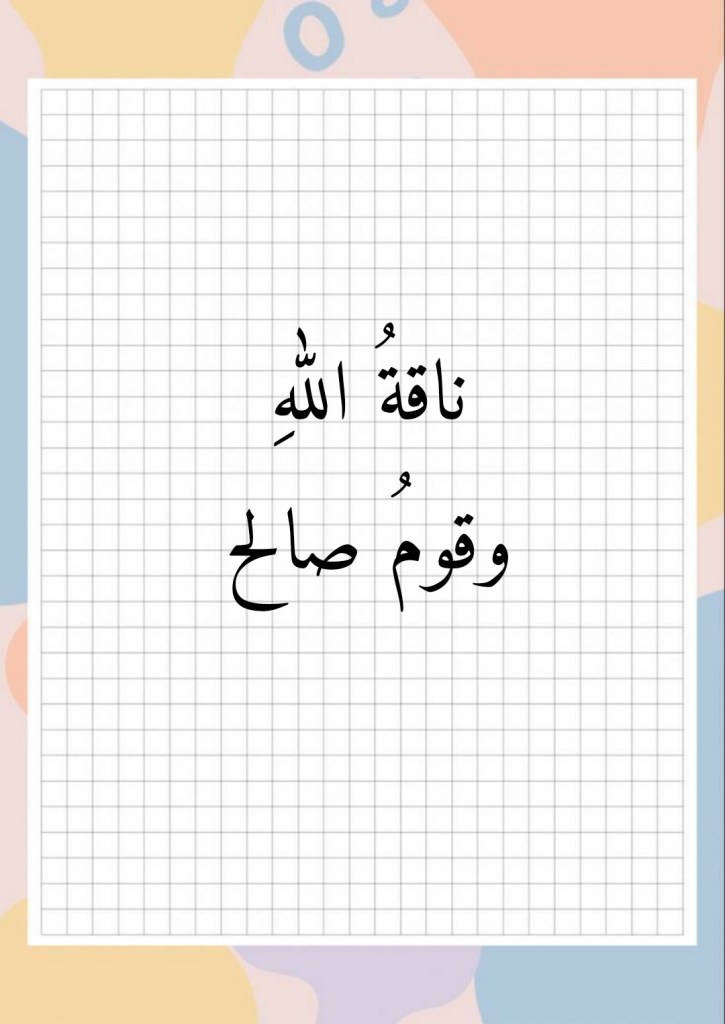 ناقةُ اللهِ
وقومُ صالح